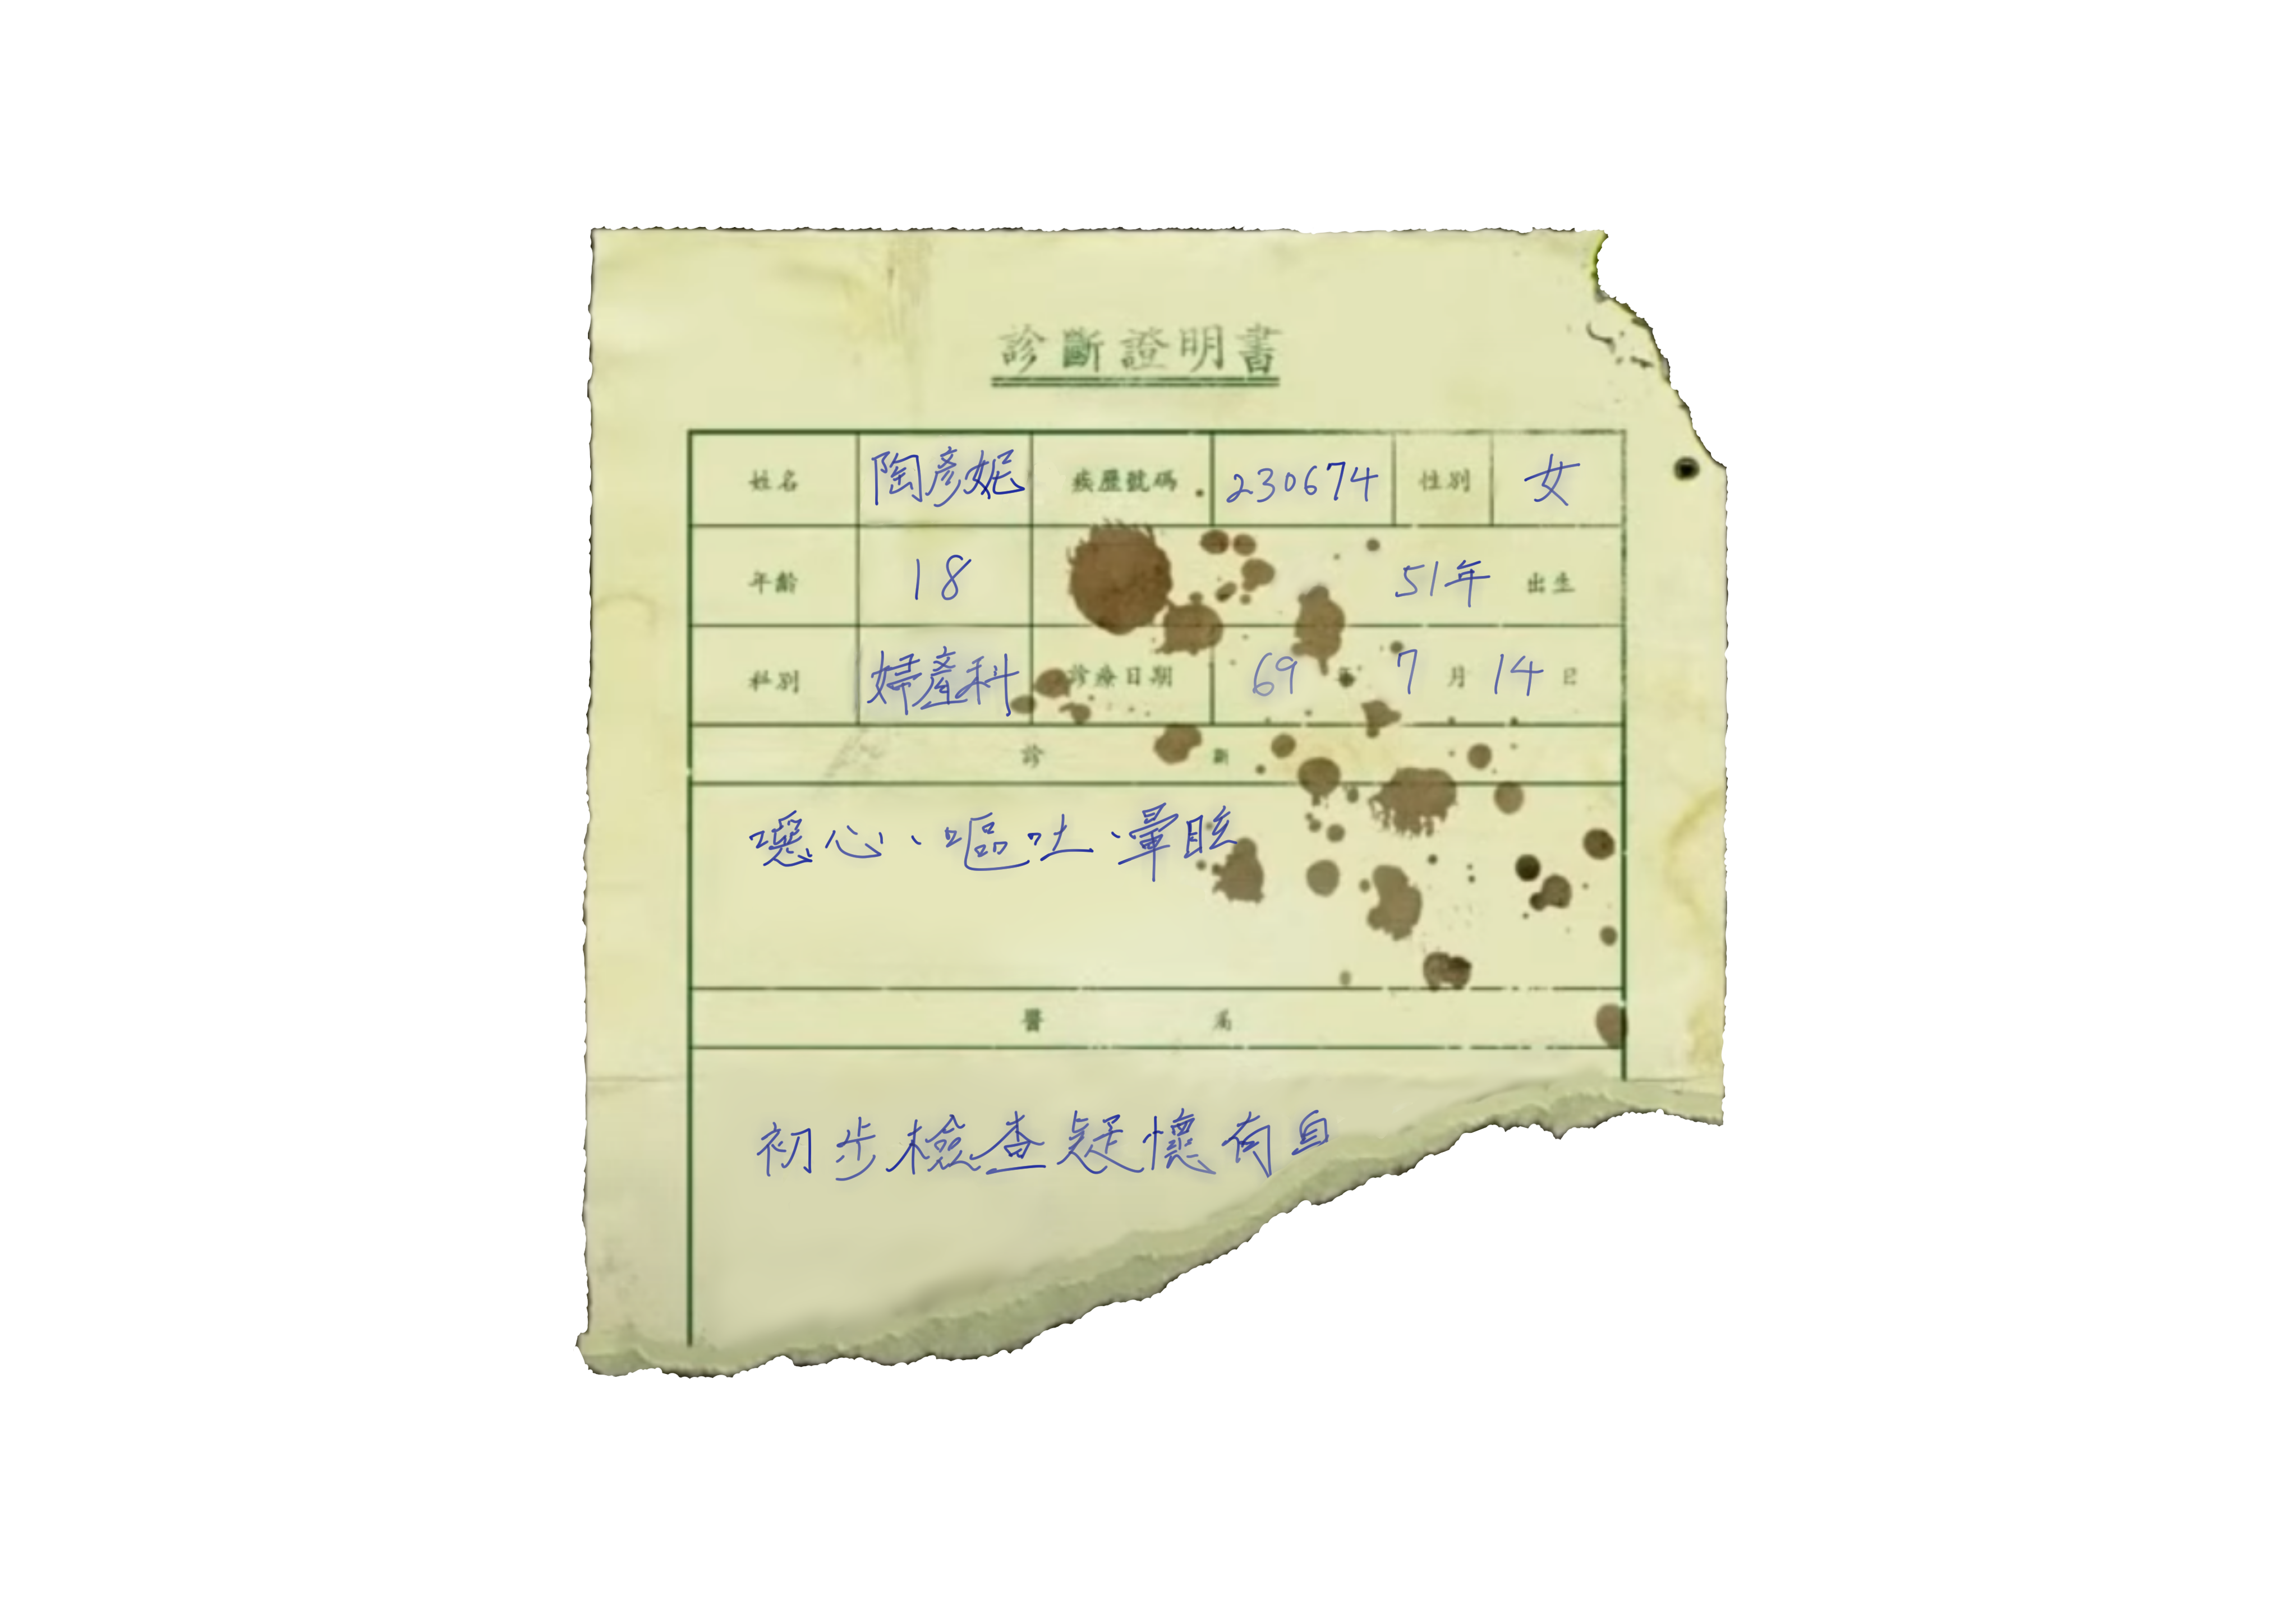 診斷證明書
姓名 陶彥妮 病歷號碼 230674 性別 女
年齡 18 51年 出生
科別 婦產科 診療日期 69年 7月 14日
診 斷
噁心、嘔吐、暈眩
醫 屬
初步檢查疑懷有